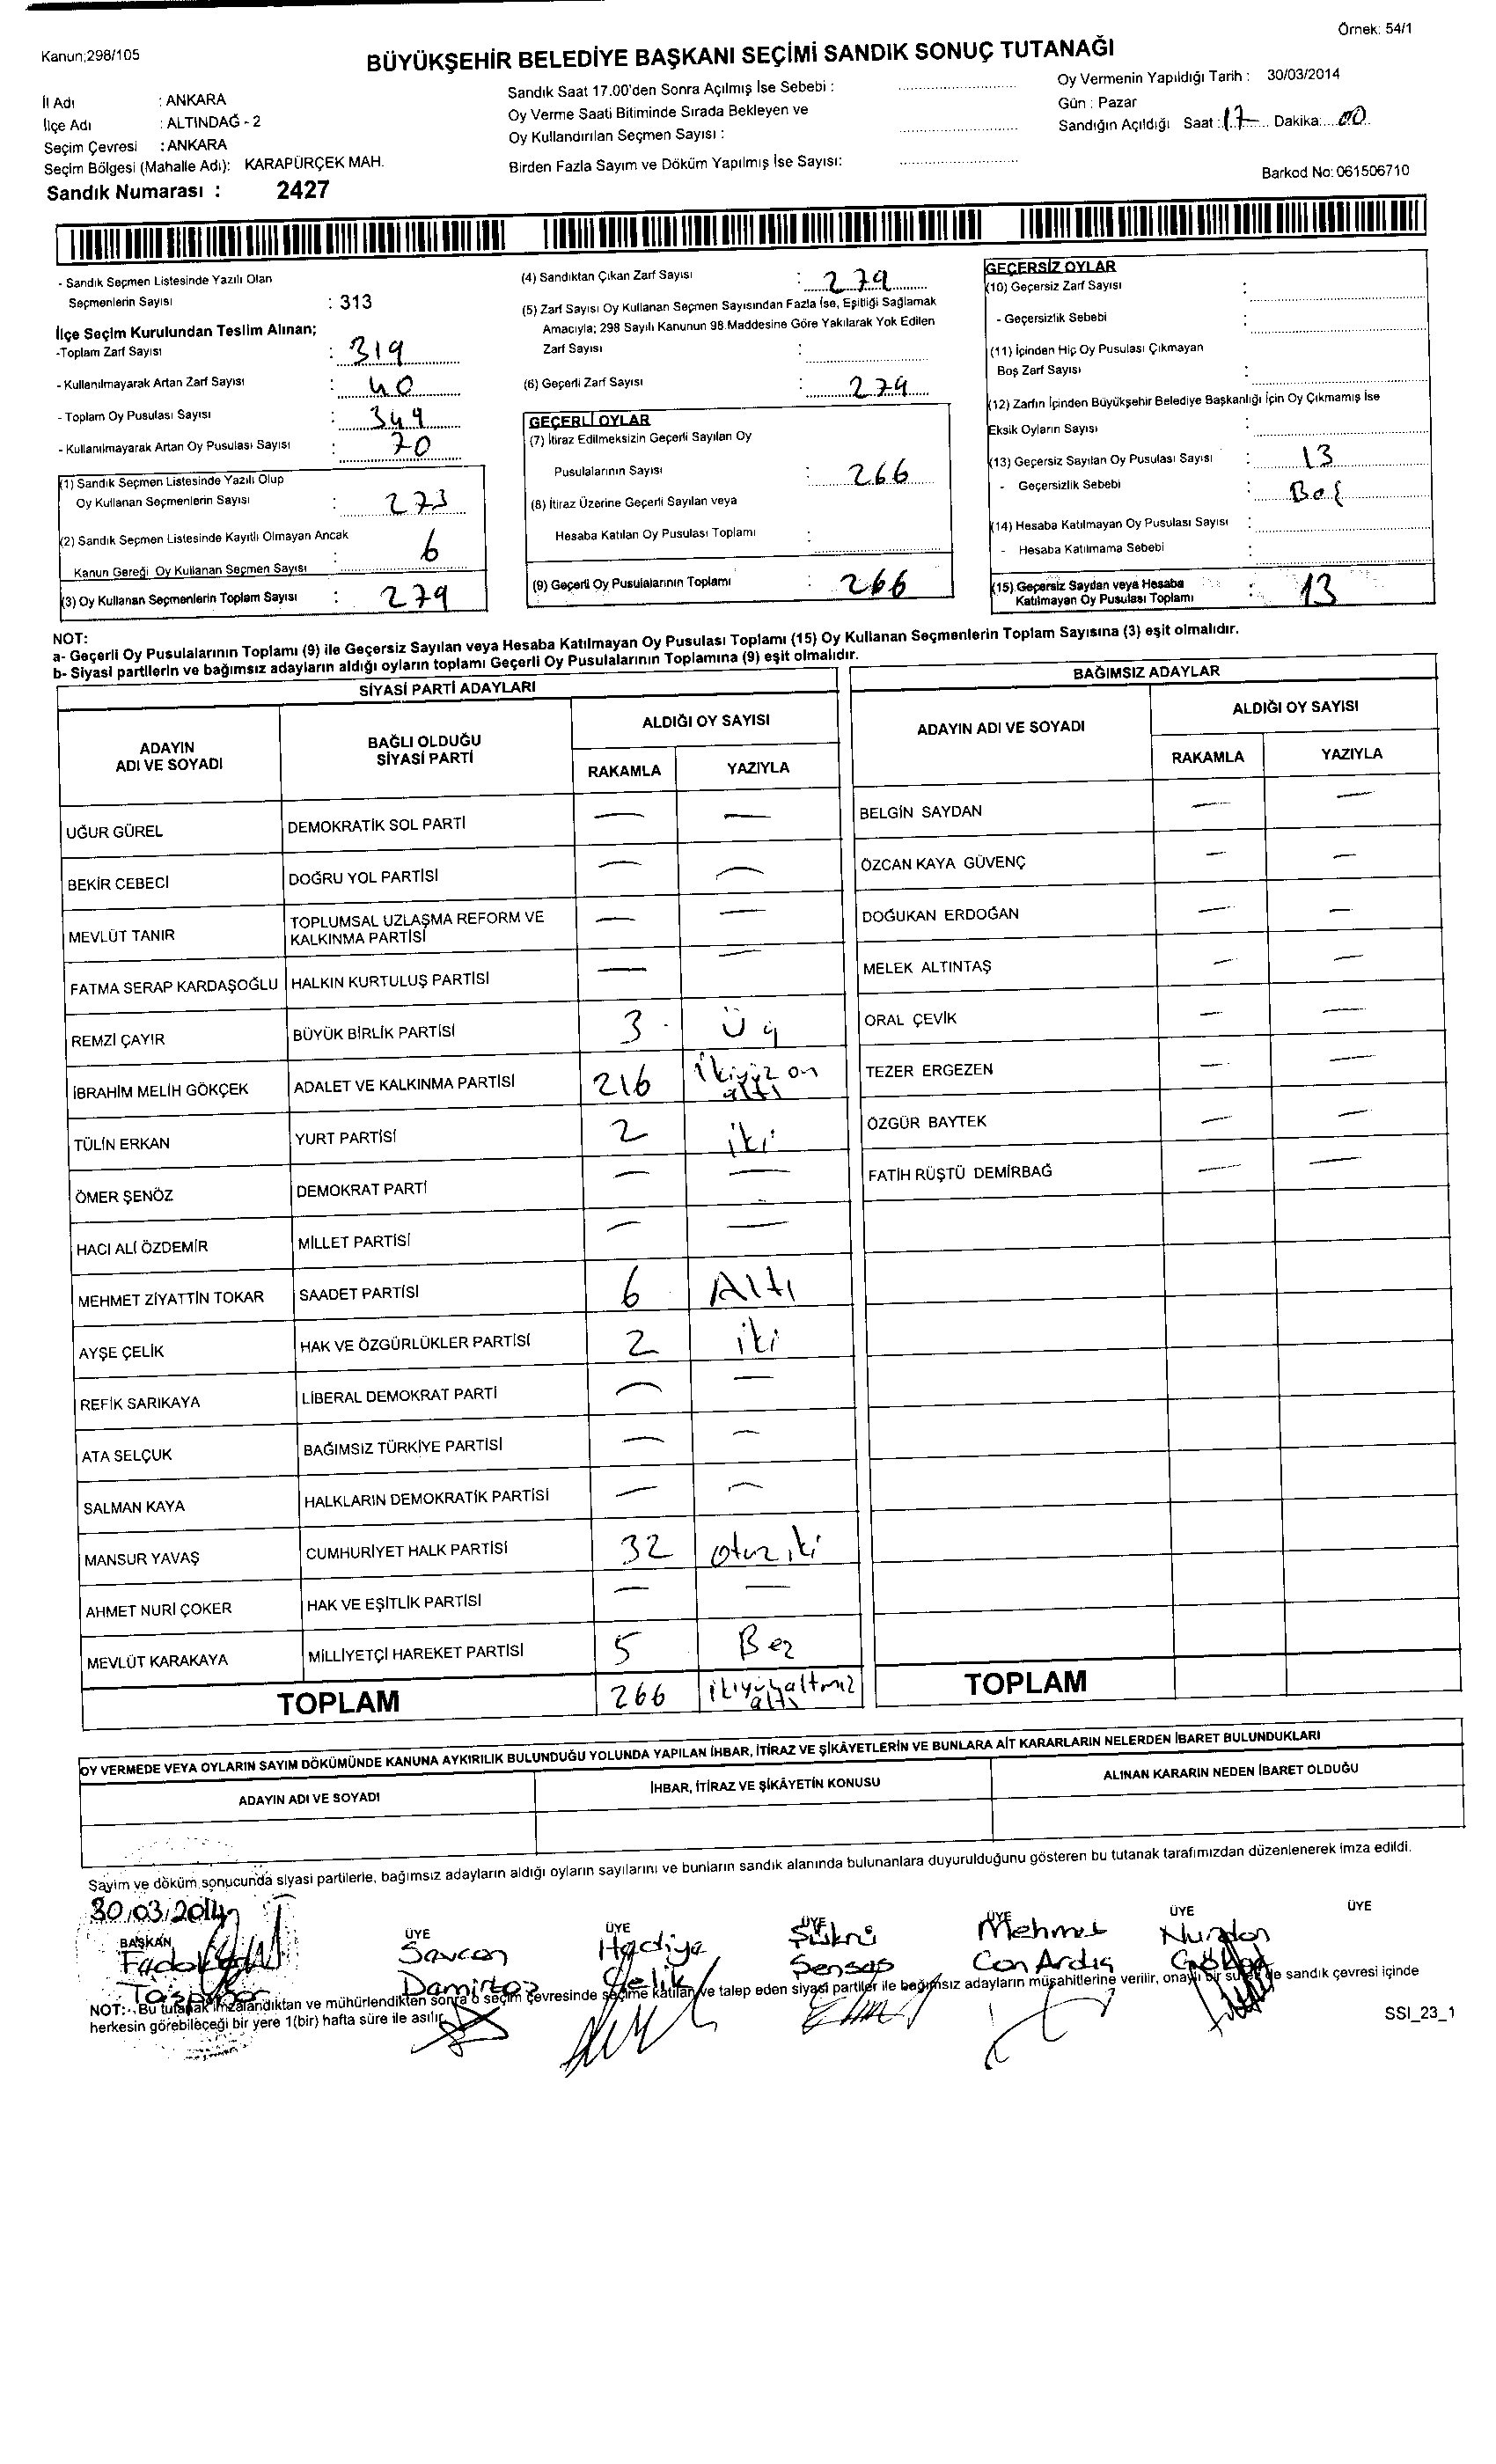 Örnek: 54/1
Kanun;298/105
BÜYÜKŞEHİR BELEDİYE BAŞKANI SEÇİMİ SANDIK SONUÇ TUTANAĞI
İl Adı : ANKARA
İlçe Adı : ALTINDAĞ - 2
Seçim Çevresi : ANKARA
Seçim Bölgesi (Mahalle Adı): KARAPÜRÇEK MAH.
Sandık Numarası : 2427
Sandık Saat 17.00'den Sonra Açılmış İse Sebebi :
Oy Verme Saati Bitiminde Sırada Bekleyen ve
Oy Kullandırılan Seçmen Sayısı :
Birden Fazla Sayım ve Döküm Yapılmış İse Sayısı:
Oy Vermenin Yapıldığı Tarih : 30/03/2014
Gün : Pazar
Sandığın Açıldığı Saat : 17 Dakika: 00
Barkod No: 061506710
- Sandık Seçmen Listesinde Yazılı Olan
Seçmenlerin Sayısı : 313
İlçe Seçim Kurulundan Teslim Alınan;
-Toplam Zarf Sayısı : 319
- Kullanılmayarak Artan Zarf Sayısı : 40
- Toplam Oy Pusulası Sayısı : 349
- Kullanılmayarak Artan Oy Pusulası Sayısı : 70
(1) Sandık Seçmen Listesinde Yazılı Olup
Oy Kullanan Seçmenlerin Sayısı : 273
(2) Sandık Seçmen Listesinde Kayıtlı Olmayan Ancak
Kanun Gereği Oy Kullanan Seçmen Sayısı : 6
(3) Oy Kullanan Seçmenlerin Toplam Sayısı : 279
(4) Sandıktan Çıkan Zarf Sayısı : 279
(5) Zarf Sayısı Oy Kullanan Seçmen Sayısından Fazla İse, Eşitliği Sağlamak
Amacıyla; 298 Sayılı Kanunun 98.Maddesine Göre Yakılarak Yok Edilen
Zarf Sayısı :
(6) Geçerli Zarf Sayısı : 279
GEÇERLİ OYLAR
(7) İtiraz Edilmeksizin Geçerli Sayılan Oy
Pusulalarının Sayısı : 266
(8) İtiraz Üzerine Geçerli Sayılan veya
Hesaba Katılan Oy Pusulası Toplamı :
(9) Geçerli Oy Pusulalarının Toplamı : 266
GEÇERSİZ OYLAR
(10) Geçersiz Zarf Sayısı :
- Geçersizlik Sebebi :
(11) İçinden Hiç Oy Pusulası Çıkmayan
Boş Zarf Sayısı :
(12) Zarfın İçinden Büyükşehir Belediye Başkanlığı İçin Oy Çıkmamış İse
Eksik Oyların Sayısı :
(13) Geçersiz Sayılan Oy Pusulası Sayısı : 13
- Geçersizlik Sebebi : Boş
(14) Hesaba Katılmayan Oy Pusulası Sayısı :
- Hesaba Katılmama Sebebi :
(15) Geçersiz Sayılan veya Hesaba
Katılmayan Oy Pusulası Toplamı : 13
NOT:
a- Geçerli Oy Pusulalarının Toplamı (9) ile Geçersiz Sayılan veya Hesaba Katılmayan Oy Pusulası Toplamı (15) Oy Kullanan Seçmenlerin Toplam Sayısına (3) eşit olmalıdır.
b- Siyasi partilerin ve bağımsız adayların aldığı oyların toplamı Geçerli Oy Pusulalarının Toplamına (9) eşit olmalıdır.
SİYASİ PARTİ ADAYLARI
ADAYIN ADI VE SOYADI
BAĞLI OLDUĞU SİYASİ PARTİ
ALDIĞI OY SAYISI
RAKAMLA YAZIYLA
UĞUR GÜREL DEMOKRATİK SOL PARTİ — —
BEKİR CEBECİ DOĞRU YOL PARTİSİ — —
MEVLÜT TANIR TOPLUMSAL UZLAŞMA REFORM VE KALKINMA PARTİSİ — —
FATMA SERAP KARDAŞOĞLU HALKIN KURTULUŞ PARTİSİ — —
REMZİ ÇAYIR BÜYÜK BİRLİK PARTİSİ 3 Üç
İBRAHİM MELİH GÖKÇEK ADALET VE KALKINMA PARTİSİ 216 ikiyüz on altı
TÜLİN ERKAN YURT PARTİSİ 2 iki
ÖMER ŞENÖZ DEMOKRAT PARTİ — —
HACI ALİ ÖZDEMİR MİLLET PARTİSİ — —
MEHMET ZİYATTİN TOKAR SAADET PARTİSİ 6 Altı
AYŞE ÇELİK HAK VE ÖZGÜRLÜKLER PARTİSİ 2 iki
REFİK SARIKAYA LİBERAL DEMOKRAT PARTİ — —
ATA SELÇUK BAĞIMSIZ TÜRKİYE PARTİSİ — —
SALMAN KAYA HALKLARIN DEMOKRATİK PARTİSİ — —
MANSUR YAVAŞ CUMHURİYET HALK PARTİSİ 32 otuz iki
AHMET NURİ ÇOKER HAK VE EŞİTLİK PARTİSİ — —
MEVLÜT KARAKAYA MİLLİYETÇİ HAREKET PARTİSİ 5 Beş
TOPLAM 266 ikiyüzaltmız altı
BAĞIMSIZ ADAYLAR
ADAYIN ADI VE SOYADI
ALDIĞI OY SAYISI
RAKAMLA YAZIYLA
BELGİN SAYDAN — —
ÖZCAN KAYA GÜVENÇ — —
DOĞUKAN ERDOĞAN — —
MELEK ALTINTAŞ — —
ORAL ÇEVİK — —
TEZER ERGEZEN — —
ÖZGÜR BAYTEK — —
FATİH RÜŞTÜ DEMİRBAĞ — —
TOPLAM
OY VERMEDE VEYA OYLARIN SAYIM DÖKÜMÜNDE KANUNA AYKIRILIK BULUNDUĞU YOLUNDA YAPILAN İHBAR, İTİRAZ VE ŞİKÂYETLERİN VE BUNLARA AİT KARARLARIN NELERDEN İBARET BULUNDUKLARI
ADAYIN ADI VE SOYADI İHBAR, İTİRAZ VE ŞİKÂYETİN KONUSU ALINAN KARARIN NEDEN İBARET OLDUĞU
Sayım ve döküm sonucunda siyasi partilerle, bağımsız adayların aldığı oyların sayılarını ve bunların sandık alanında bulunanlara duyurulduğunu gösteren bu tutanak tarafımızdan düzenlenerek imza edildi.
30/03/2014
BAŞKAN ÜYE ÜYE ÜYE ÜYE ÜYE ÜYE
Savcan Hadiye Şükrü Mehmet Nurdan
Damirtoz Çelik Şensap Can Ardıç
NOT: Bu tutanak imzalandıktan ve mühürlendikten sonra o seçim çevresinde seçime katılan ve talep eden siyasi partiler ile bağımsız adayların müşahitlerine verilir, onaylı bir sureti de sandık çevresi içinde
herkesin görebileceği bir yere 1(bir) hafta süre ile asılır.
SSI_23_1